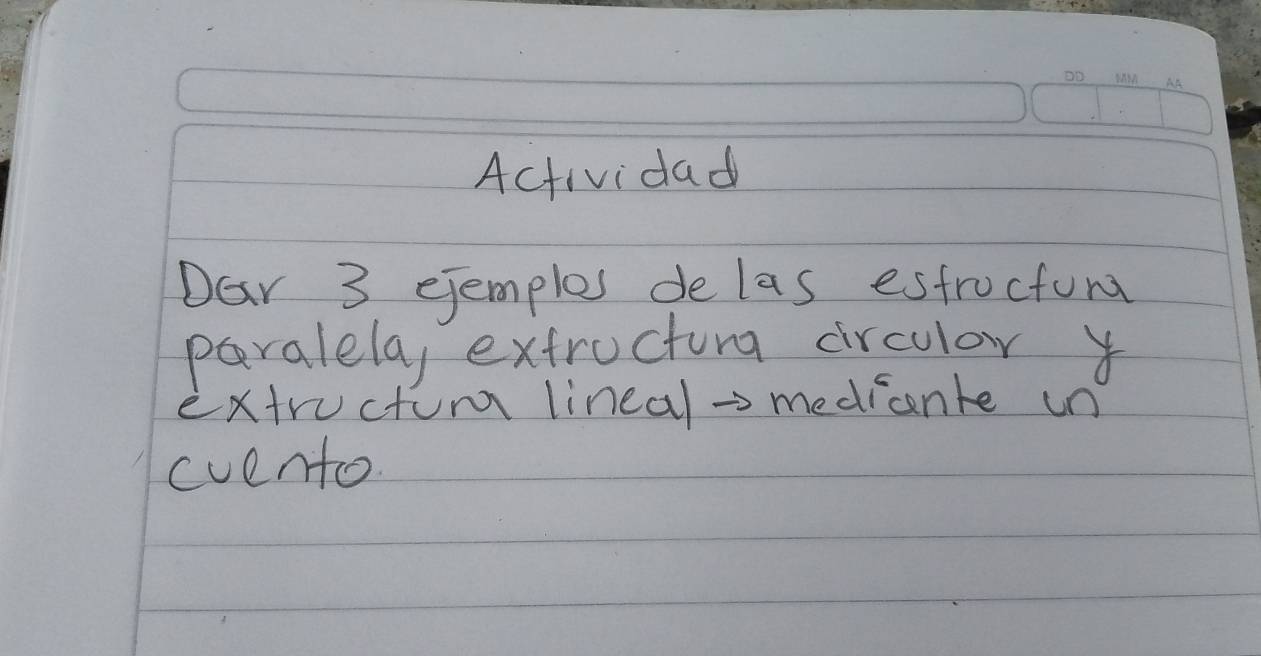 DD MM AA
Actividad
Dar 3 ejemplos de las estructura
paralela, extructura circular y
extructura lineal → mediante un
cuento.